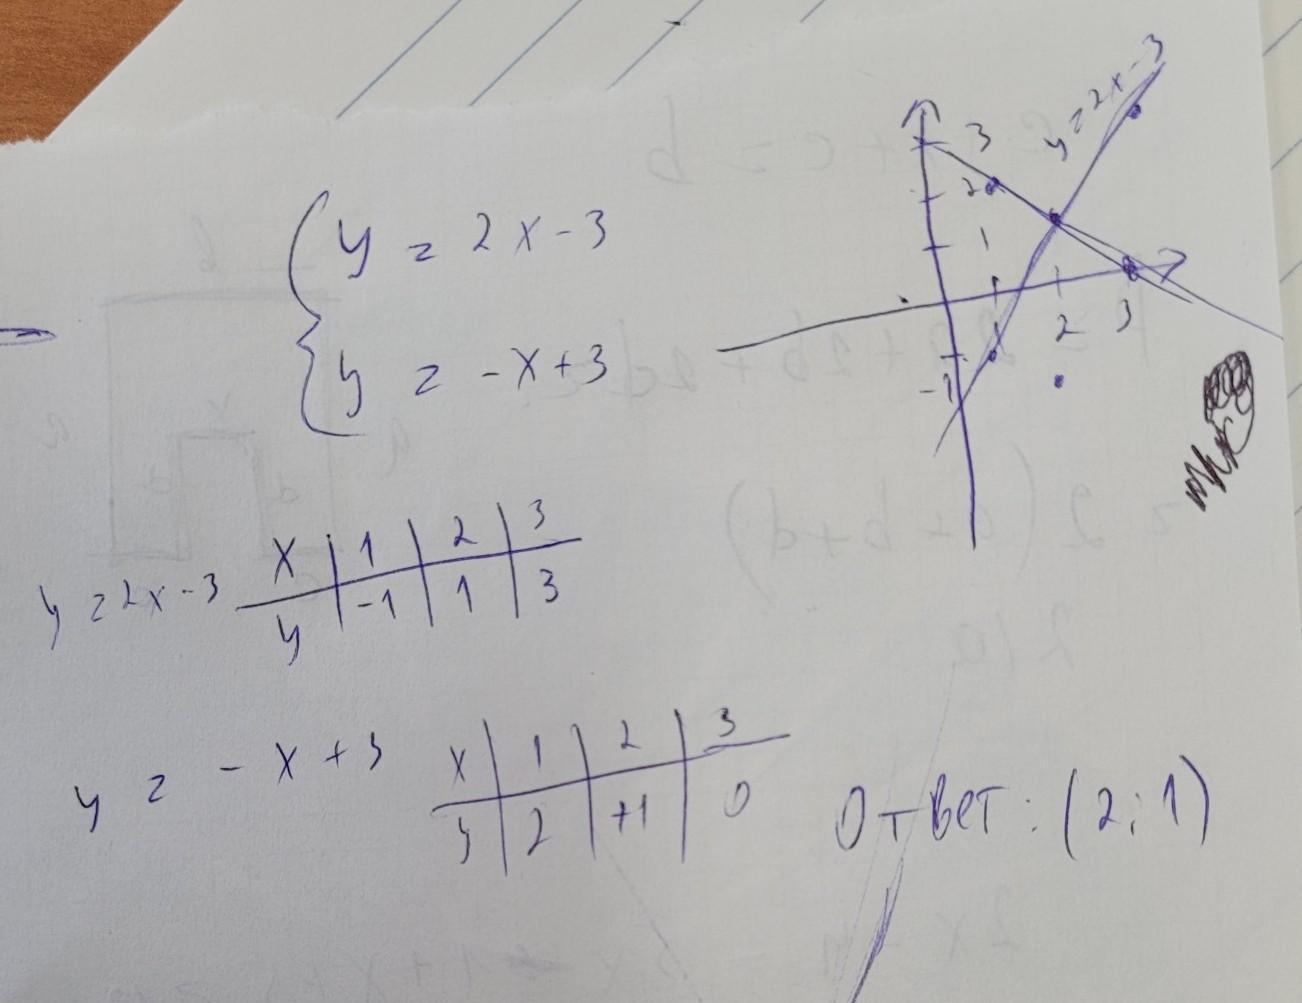 y = 2x-3
y = -x+3
3
y=2x-3
2
1
1 2 3
-1
y=2x-3 x | 1 | 2 | 3
y | -1 | 1 | 3
y = -x+3 x | 1 | 2 | 3
y | 2 | +1 | 0
Ответ: (2;1)